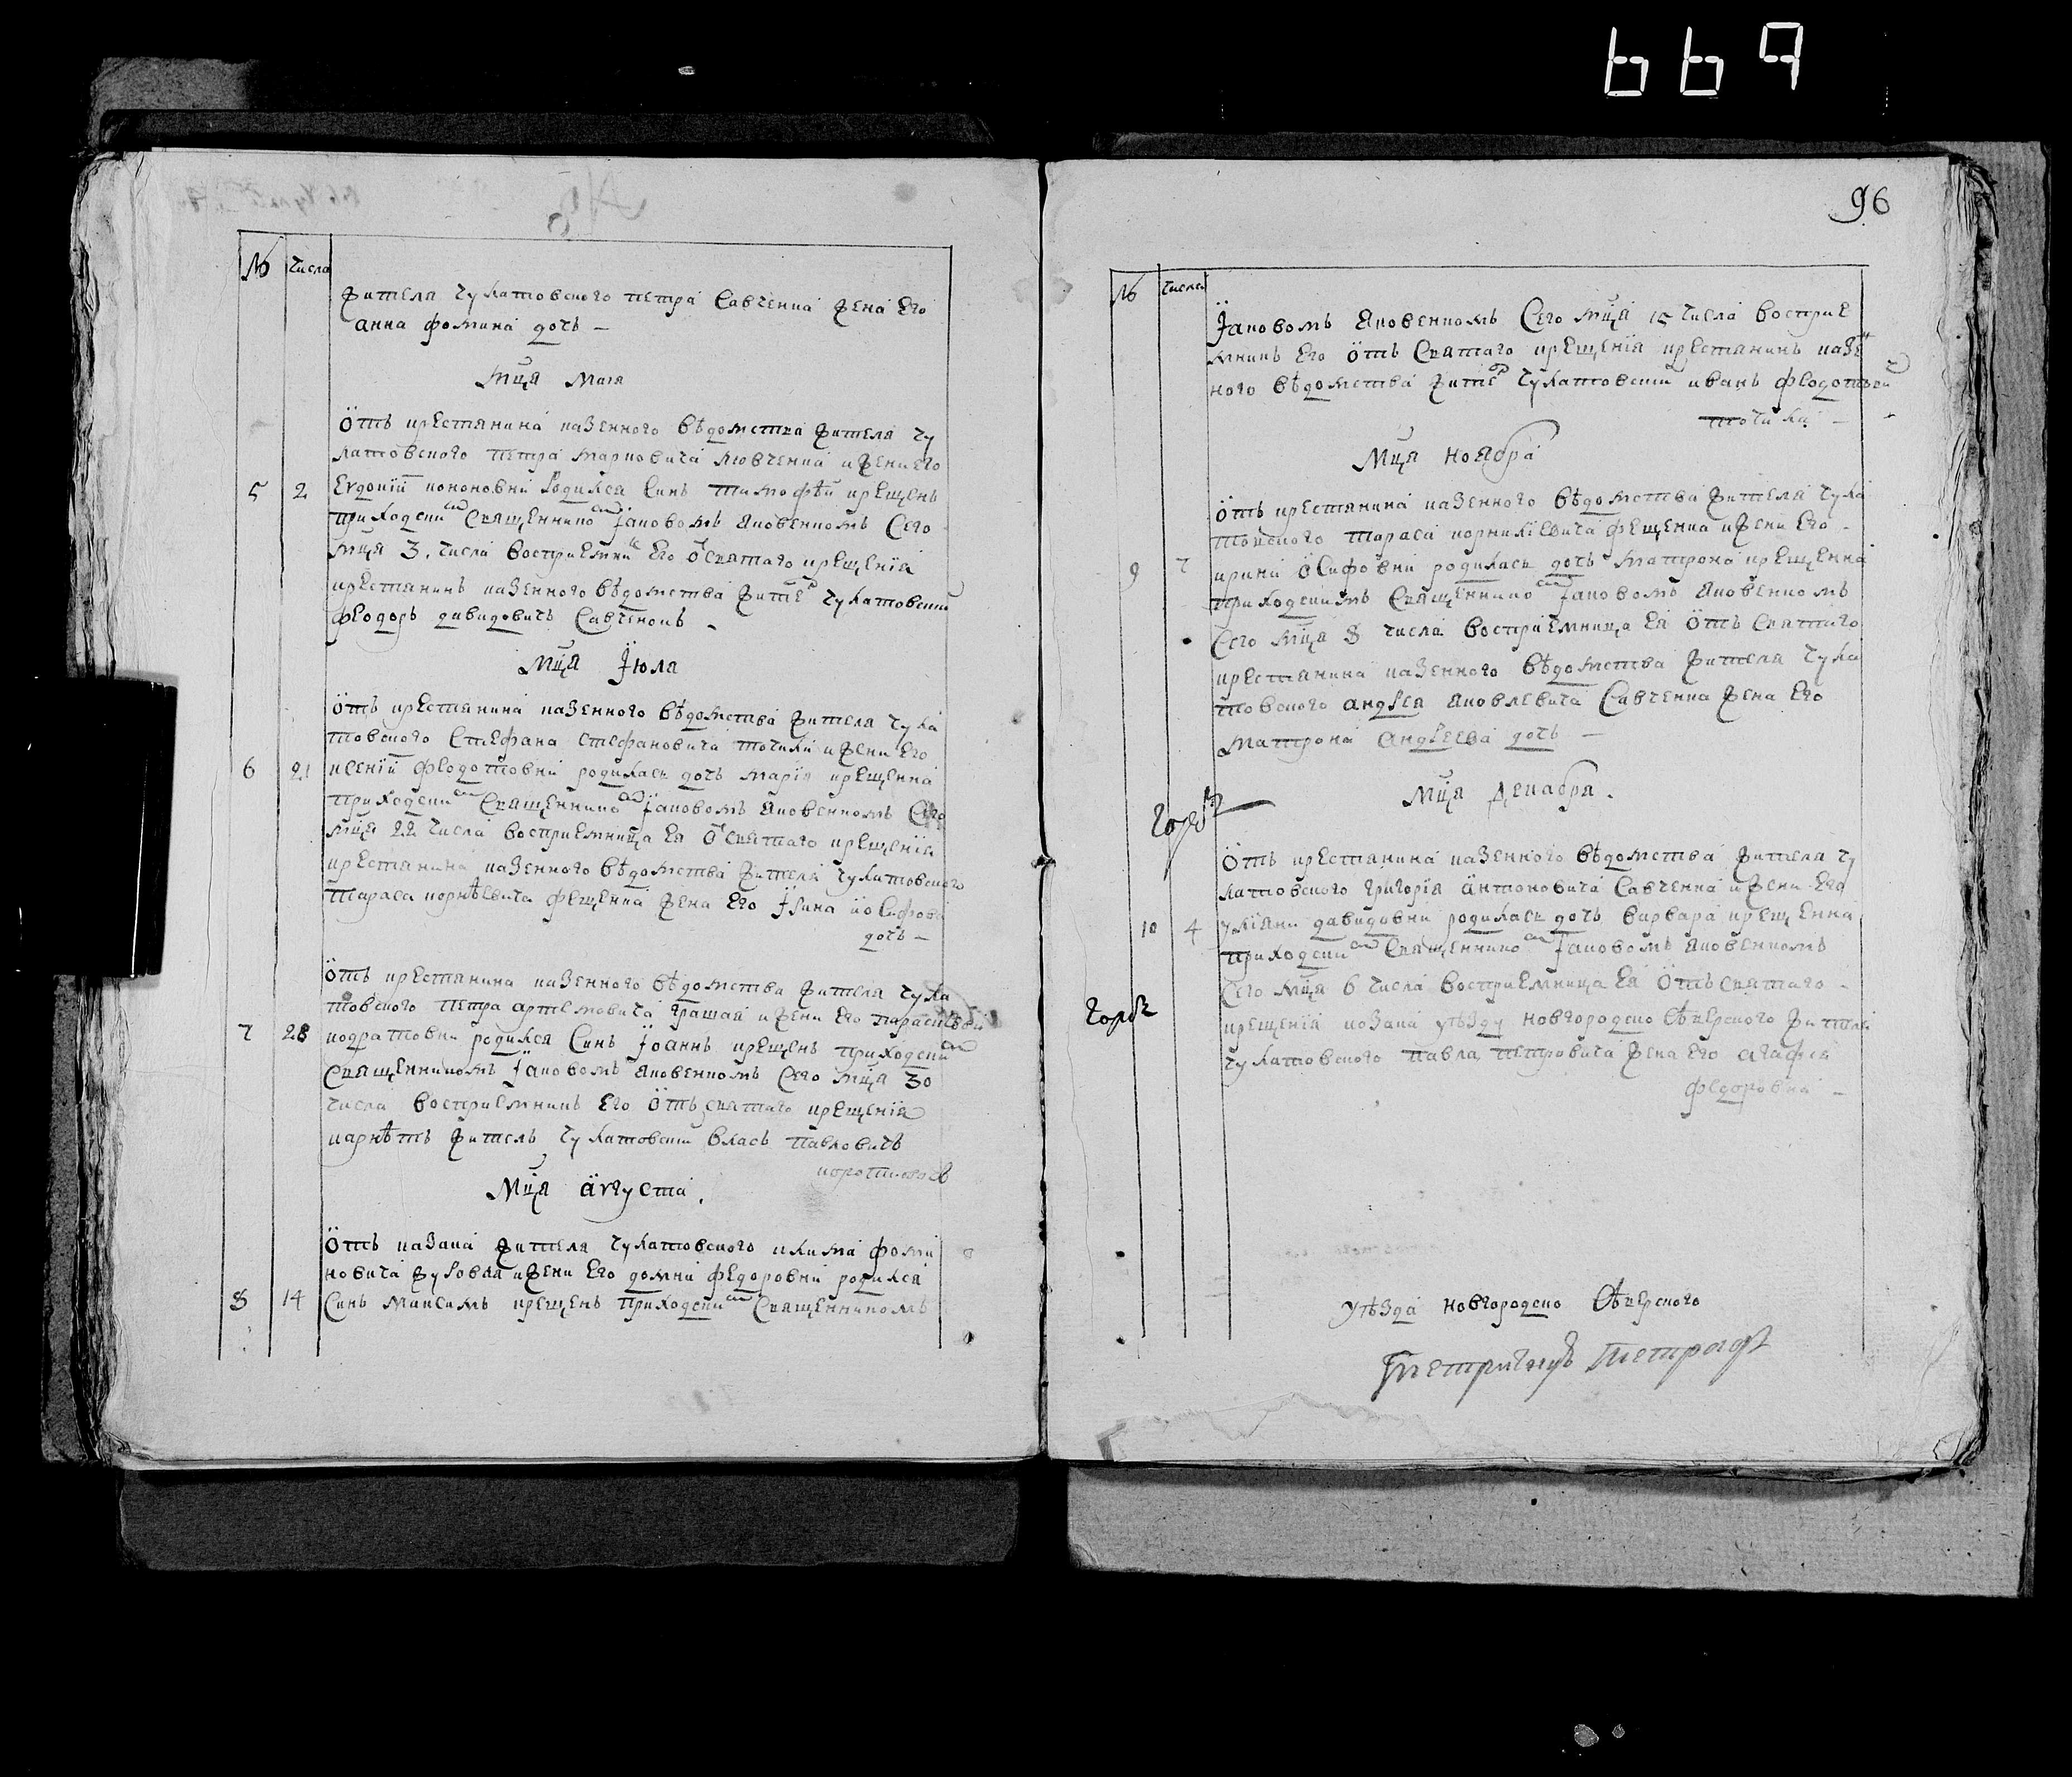 669
№ Числа
жителя чулатовского петра Савченка жена Его
анна фомина дочь –
мца Маия
Отъ крестянина казенного вѣдомства жителя чу
латовского петра марковича Лювченка и жени Его
5 2 Евдокіи кононовни родился Синъ тимофѣй крещенъ
приходским Священником Іаковомъ яковенкомъ Сего
мца 3. числа восприемник Его от Святаго крещенія
крестянинъ казенного вѣдомства жител чулатовский
феодоръ давидовичъ Савченокъ –
Мца Іюла
Отъ крестянина казенного вѣдомства жителя чула
товского Стефана Стефановича точили и жени Его
6 21 ксеній феодотовни родилась дочь марія крещенна
приходским Священником Іаковомъ яковенкомъ Сего
мца 22 числа восприемница Ея от Святаго крещенія
крестянина казенного вѣдомства жителя чулатовского
тараса корнѣевича фещенка жена Его Ірина иосифова
дочь –
Отъ крестянина казенного вѣдомства жителя чула
товского петра артемовича грашая и жени Его параскѣви
7 28 кодратовни родился Синъ Іоаннъ крещенъ приходским
Священникомъ Іаковомъ яковенкомъ Сего мца 30
числа восприемникъ Его Отъ святаго крещенія
карнѣтъ житель чулатовский власъ павловичъ
Мца августа.
Отъ казака жителя чулатовского якима фоми
новича журовля и жени Его домни федоровни родился
8 14 Синъ максимъ крещенъ приходским Священникомъ
96
№ Числа
Іаковомъ яковенкомъ Сего мца 15 числа восприе
мникъ Его Отъ Святаго крещенія крестянинъ казен
ного вѣдомства жител чулатовский иванъ феодотовий
точили –
Мца ноября
Отъ крестянина казенного вѣдомства жителя чула
товского тараса корниліевича фещенка и жени Его –
9 7 ирини Осифовни родилась дочь матрона крещенна
приходскимъ Священником Іаковомъ яковенкомъ
Сего мца 8 числа восприемница Ея Отъ Святаго
крестянина казенного вѣдомства жителя чула
товского андрея яковлевича Савченка жена Его
матрона андреева дочь –
Мца декабря.
Отъ крестянина казенного вѣдомства жителя чу
латовского григорія антоновича Савченка и жени Его
10 4 уліяни давидовни родилась дочь варвара крещенна
приходским Священником Іаковомъ яковенкомъ
Сего мца 6 числа восприемница Ея Отъ святаго –
крещенія козака уѣзду новгородско Сѣверского жителя
чулатовского павла петровича жена Его агафия
федоровна –
уѣзда новгородско Сѣверского